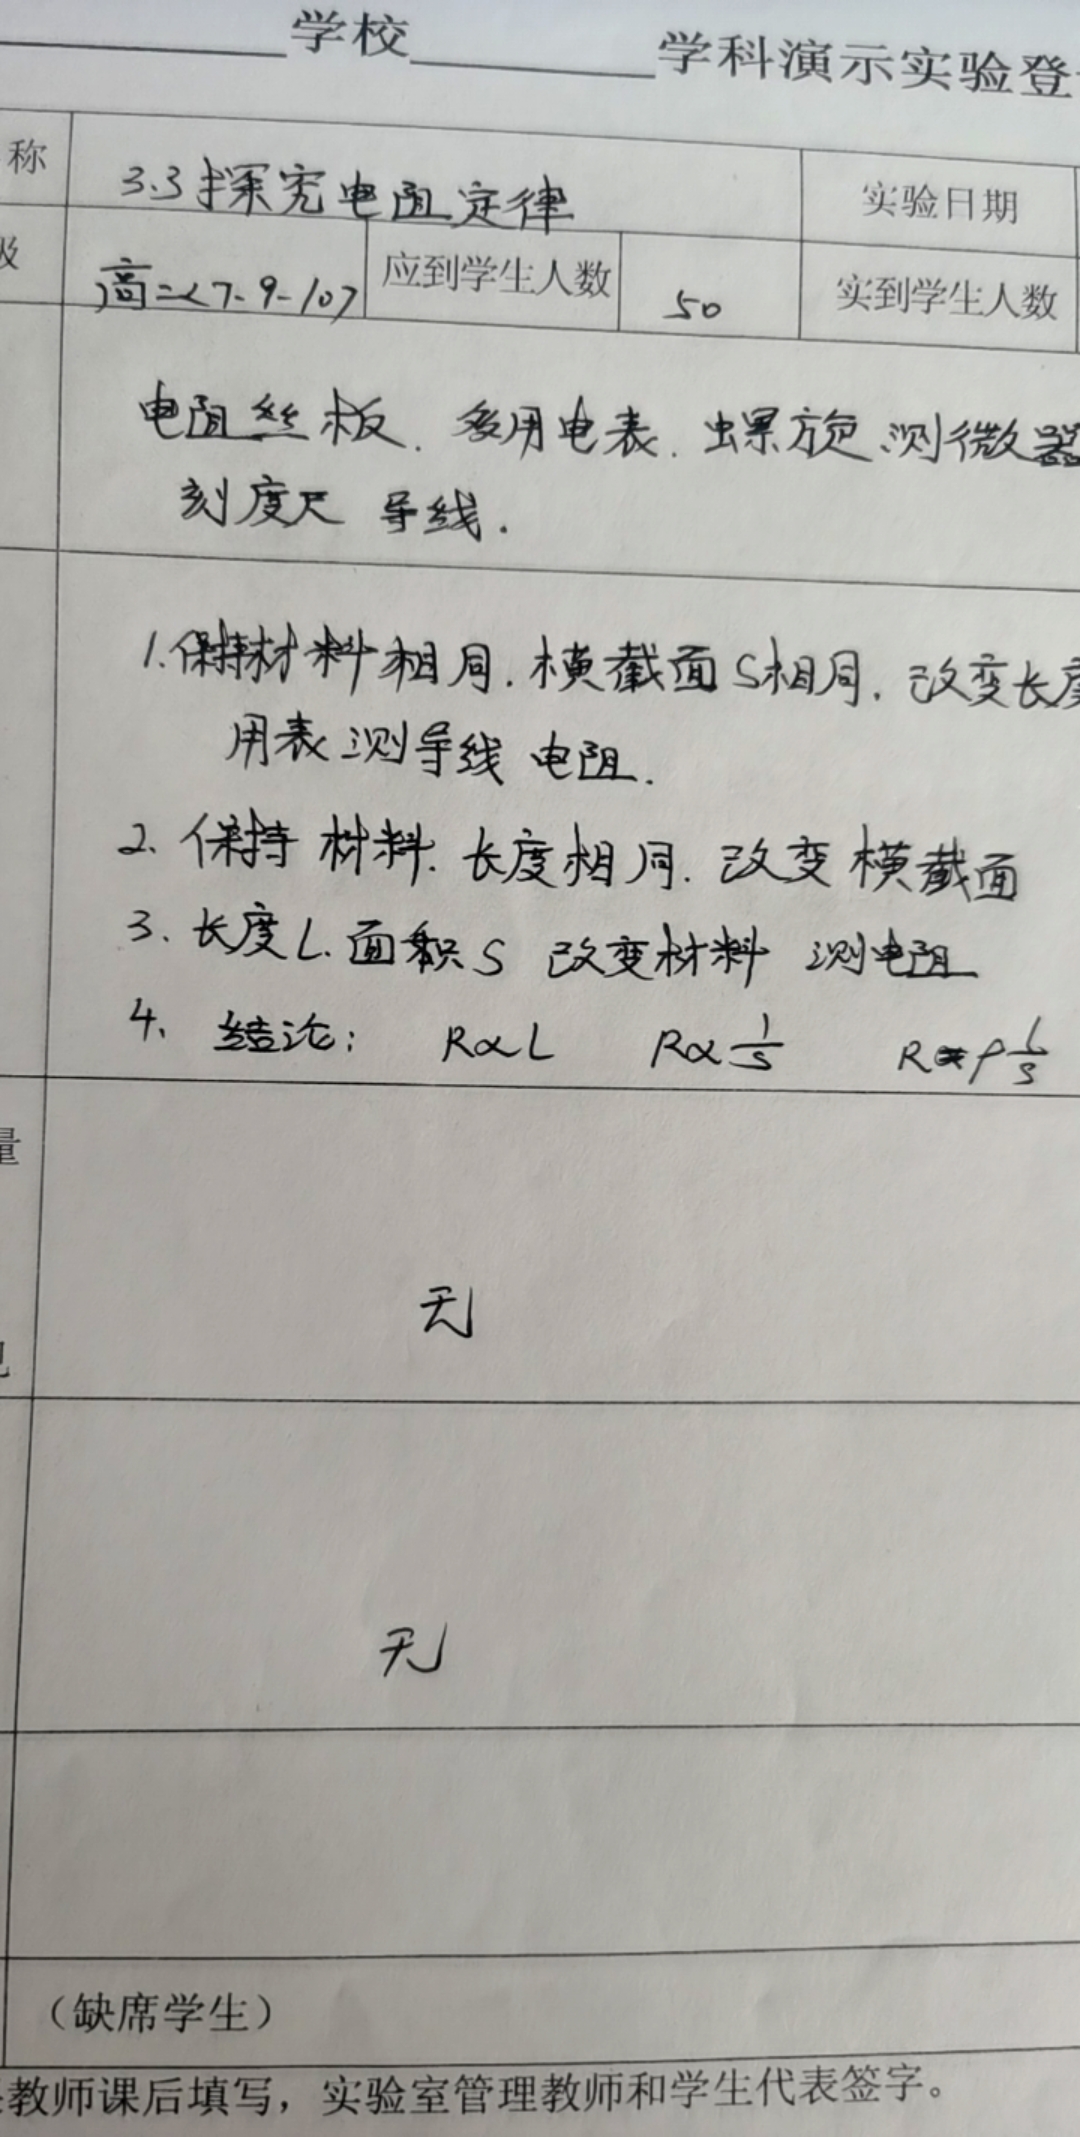 学校 学科演示实验登
称 3.3探究电阻定律 实验日期
级 高二<7-9-10> 应到学生人数 50 实到学生人数
电阻丝板. 多用电表. 螺旋测微器
刻度尺 导线.
1.保持材料相同. 横截面S相同. 改变长度
用表测导线电阻.
2. 保持材料. 长度相同. 改变横截面
3. 长度L. 面积S 改变材料 测电阻
4. 结论: R∝L R∝1/S R=ρL/S
量
无
无
(缺席学生)
教师课后填写，实验室管理教师和学生代表签字。